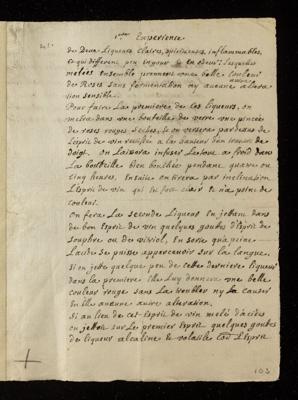 1ere Experience
de Deux Liqueurs claires, spiritueuses, inflammables,
et qui different peu en gout & en odeur; Lesquelles
melées ensemble prennent une belle Couleur
de Roses sans fermentation ny aucune autre altera
tion sensible.
Pour faire La premiere de ces liqueurs, on
mettra dans une bouteille de verre une pincée
de roses rouges seches, & on versera par dessus de
L'esprit de vin rectifié a la hauteur d'un travers de
doigt. On Laissera infuser Le tout a froid dans
La bouteille bien bouchée pendant quatre ou
cinq heures, Ensuite on tirera par inclination
L'Esprit de vin qui sera clair & n'a point de
couleur.
On fera La seconde Liqueur En jettant dans
de bon Esprit de vin quelques gouttes d'Esprit de
souphre ou de vitriol, En sorte qu'a peine
L'acide se puisse appercevoir sur la langue.
Si on jette quelque peu de cette derniere liqueur
dans la premiere Elle Luy donnera une belle
couleur rouge sans La troubler ny La causer
En elle aucune autre alteration.
Si au lieu de cet Esprit de vin melé d'acides
on jettoit sur Le premier Esprit quelques gouttes
de liqueur alcaline & volatile Comme L'Esprit
103